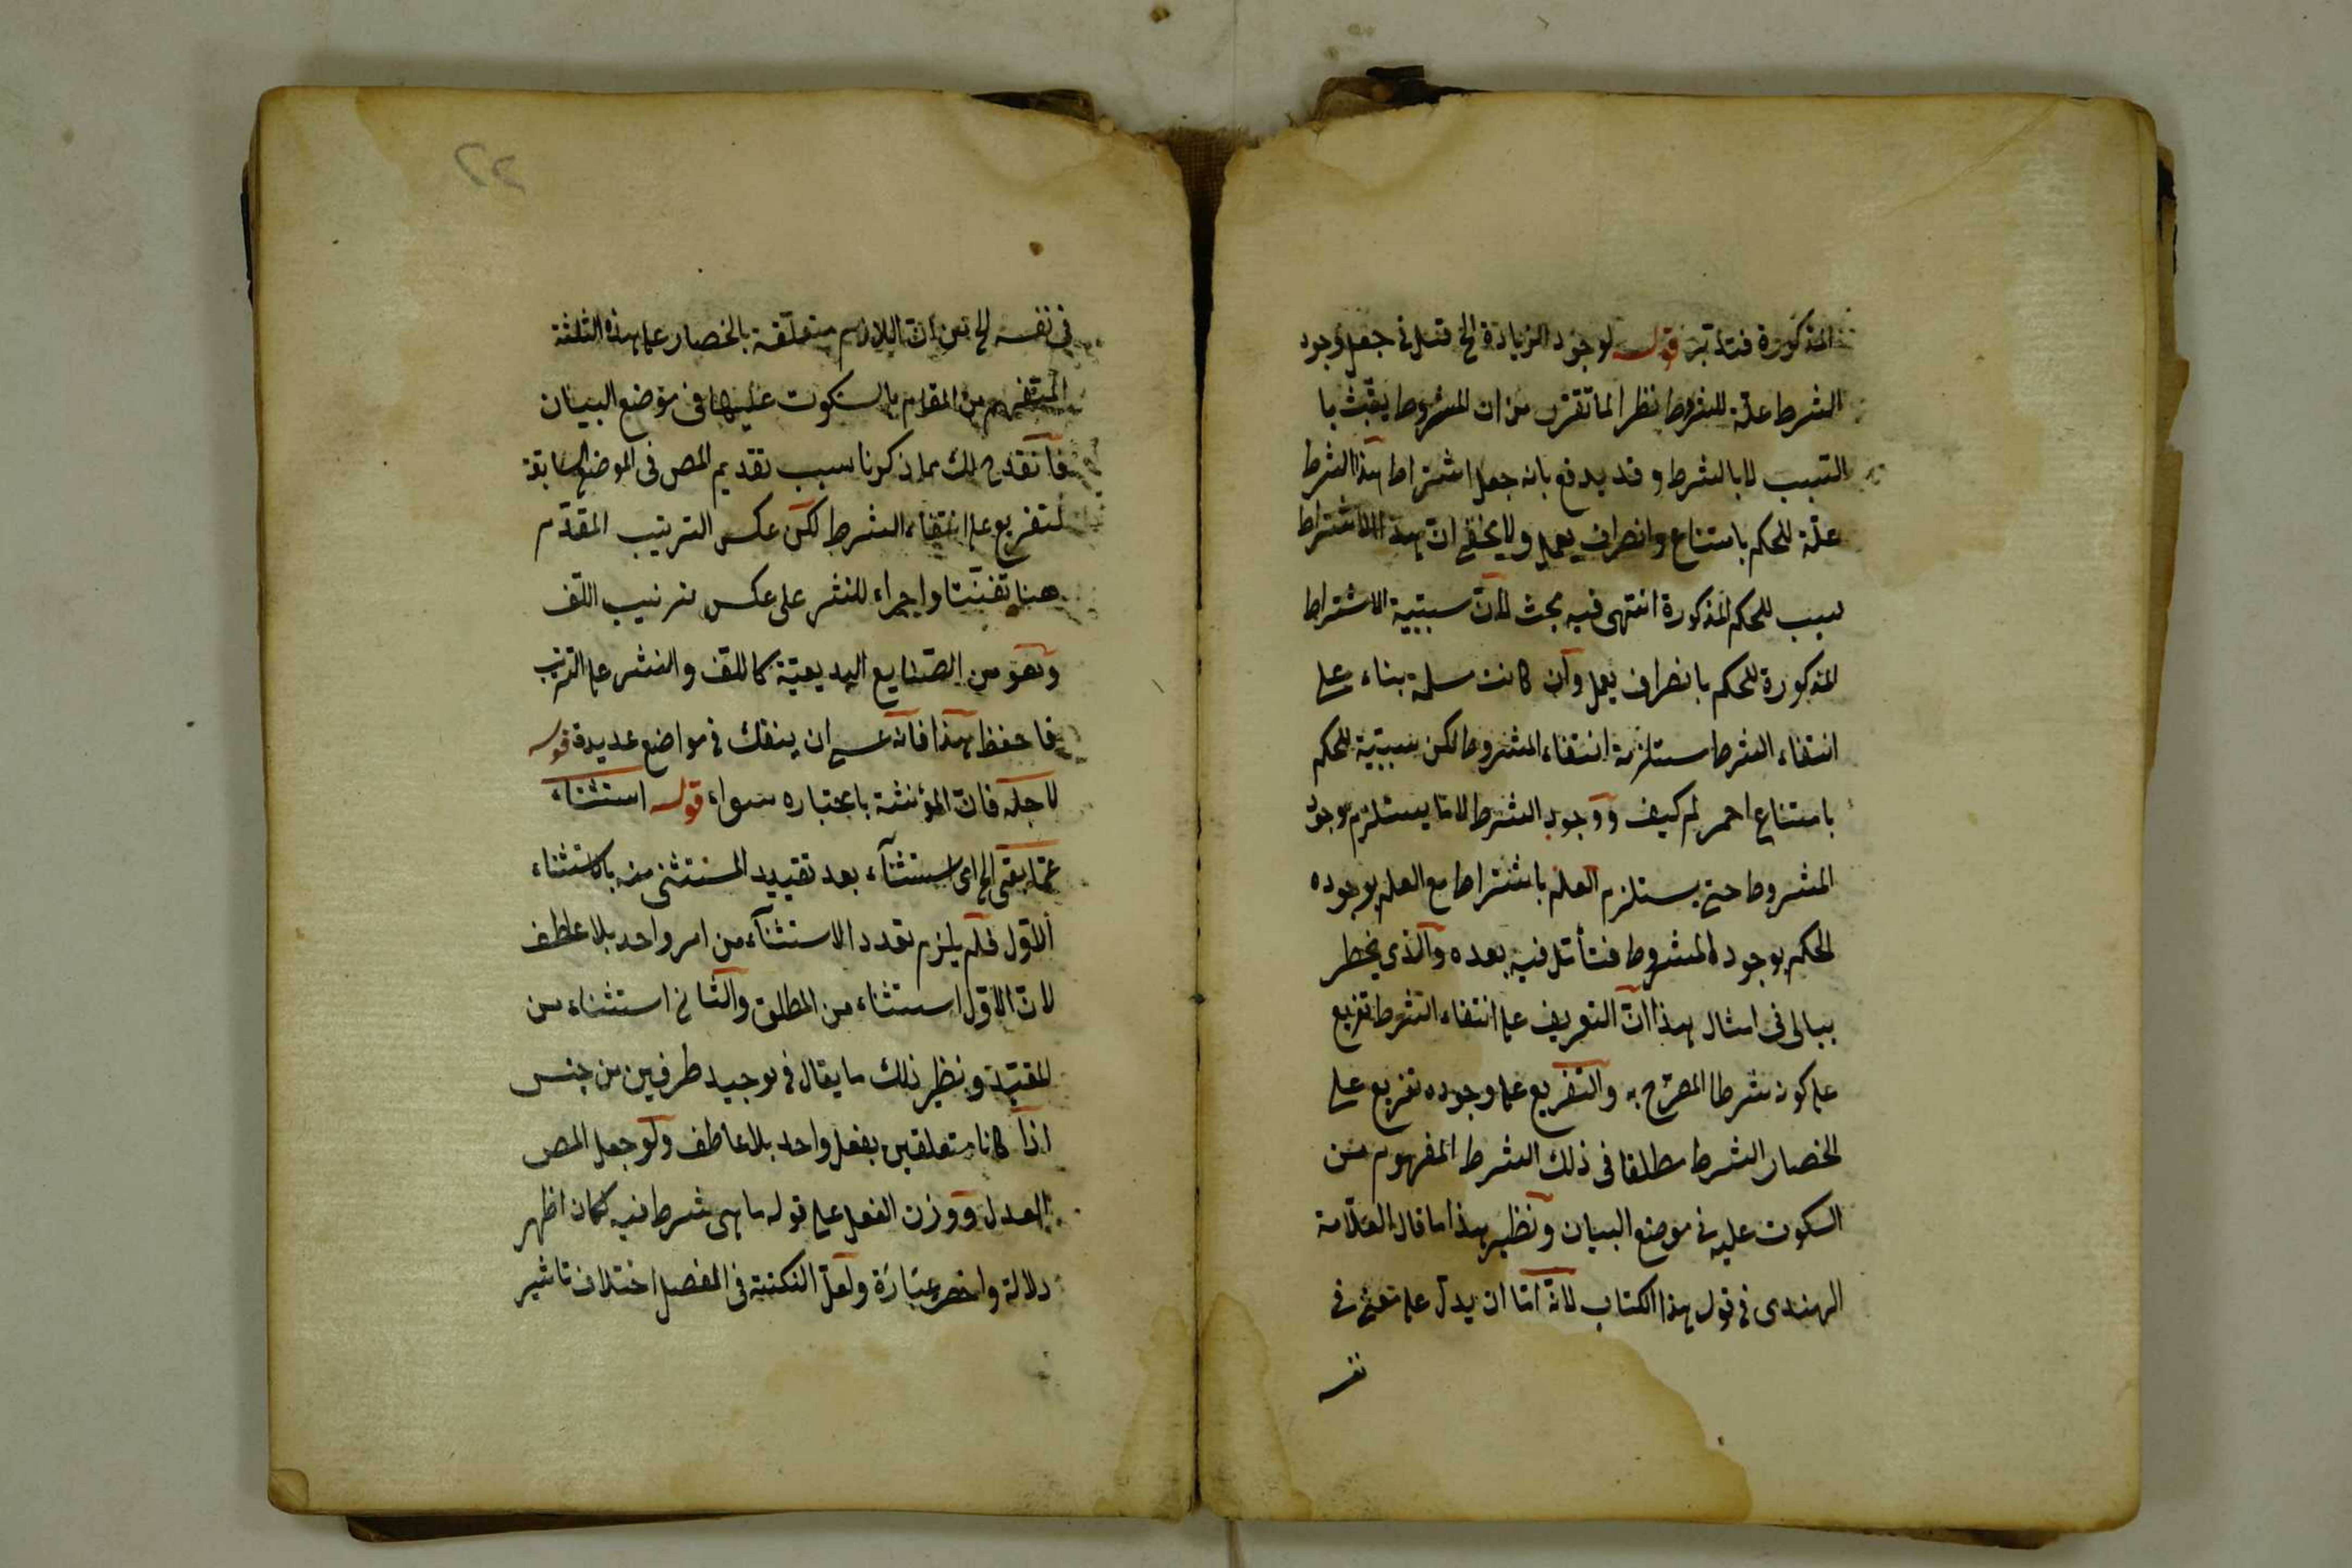 المذكورة فتدبر قوله لوجود الزيادة الخ قيل في جعل وجود
الشرط علة للمشروط نظر لما تقرر من ان المشروط يثبت با
السبب لا بالشرط وقد يدفع بانه جعل اشتراط هذا الشرط
علة للحكم بامتناع وانصراف يعمل ولا يخفى ان هذا الاشتراط
سبب للحكم المذكورة انتهى فيه بحث لان سببية الاشتراط
المذكورة للحكم بانصراف يعمل وان كانت مسلمة بناء على
انتفاء الشرط مستلزمة انتفاء المشروط لكن سببية للحكم
بامتناع احمر لم كيف ووجود الشرط لا ما يستلزم وجود
المشروط حتى يستلزم العلم باشتراط مع العلم بوجوده
الحكم بوجود المشروط فتأمل فيه بعده والذي يخطر
ببالي في امثال هذا ان التعريف على انتفاء الشرط تفريع
على كون شرطا المصرح به والتفريع على وجوده تفريع على
الخصار الشرط مطلقا في ذلك الشرط المفهوم من
السكوت عليه في موضع البيان ونظير هذا ما قال العلامة
الهندى في قول هذا الكتاب لانه اما ان يدل على معنى في
نفسه
في نفسه الخ من ان اللازم متعلقة بالخصار على هذه الثلثة
المتفهم من المقام بالسكوت عليها في موضع البيان
فانقدح لك مما ذكرنا سبب تقديم المص في الموضع السابقة
لتفريع على انتفاء الشرط لكن عكس الترتيب المقدم
هنا تفننا واجراء للنشر على عكس ترتيب اللف
وهو من الصنايع البديعية كاللف والنشر على الترتيب
فاحفظ هذا فانه عسى ان ينفك في مواضع عديدة قوله
لاجله فان المؤنثة باعتباره سواء قوله استثناء
عما بقى الخ اى استثناء بعد تقييد المستثنى منه بالاستثناء
الاول فلم يلزم تعدد الاستثناء من امر واحد بلا عاطف
لان الاول استثناء من المطلق والثاني استثناء من
المقيد ونظير ذلك ما يقال في توجيه طرفين من جنس
اذا كانا متعلقين بفعل واحد بلا عاطف ولو جعل المص
العدل ووزن الفعل على قوله ما هى شرط فيه لكان اظهر
دلالة واخصر عبارة ولعل النكتة في المفصل اختلاف تاثير